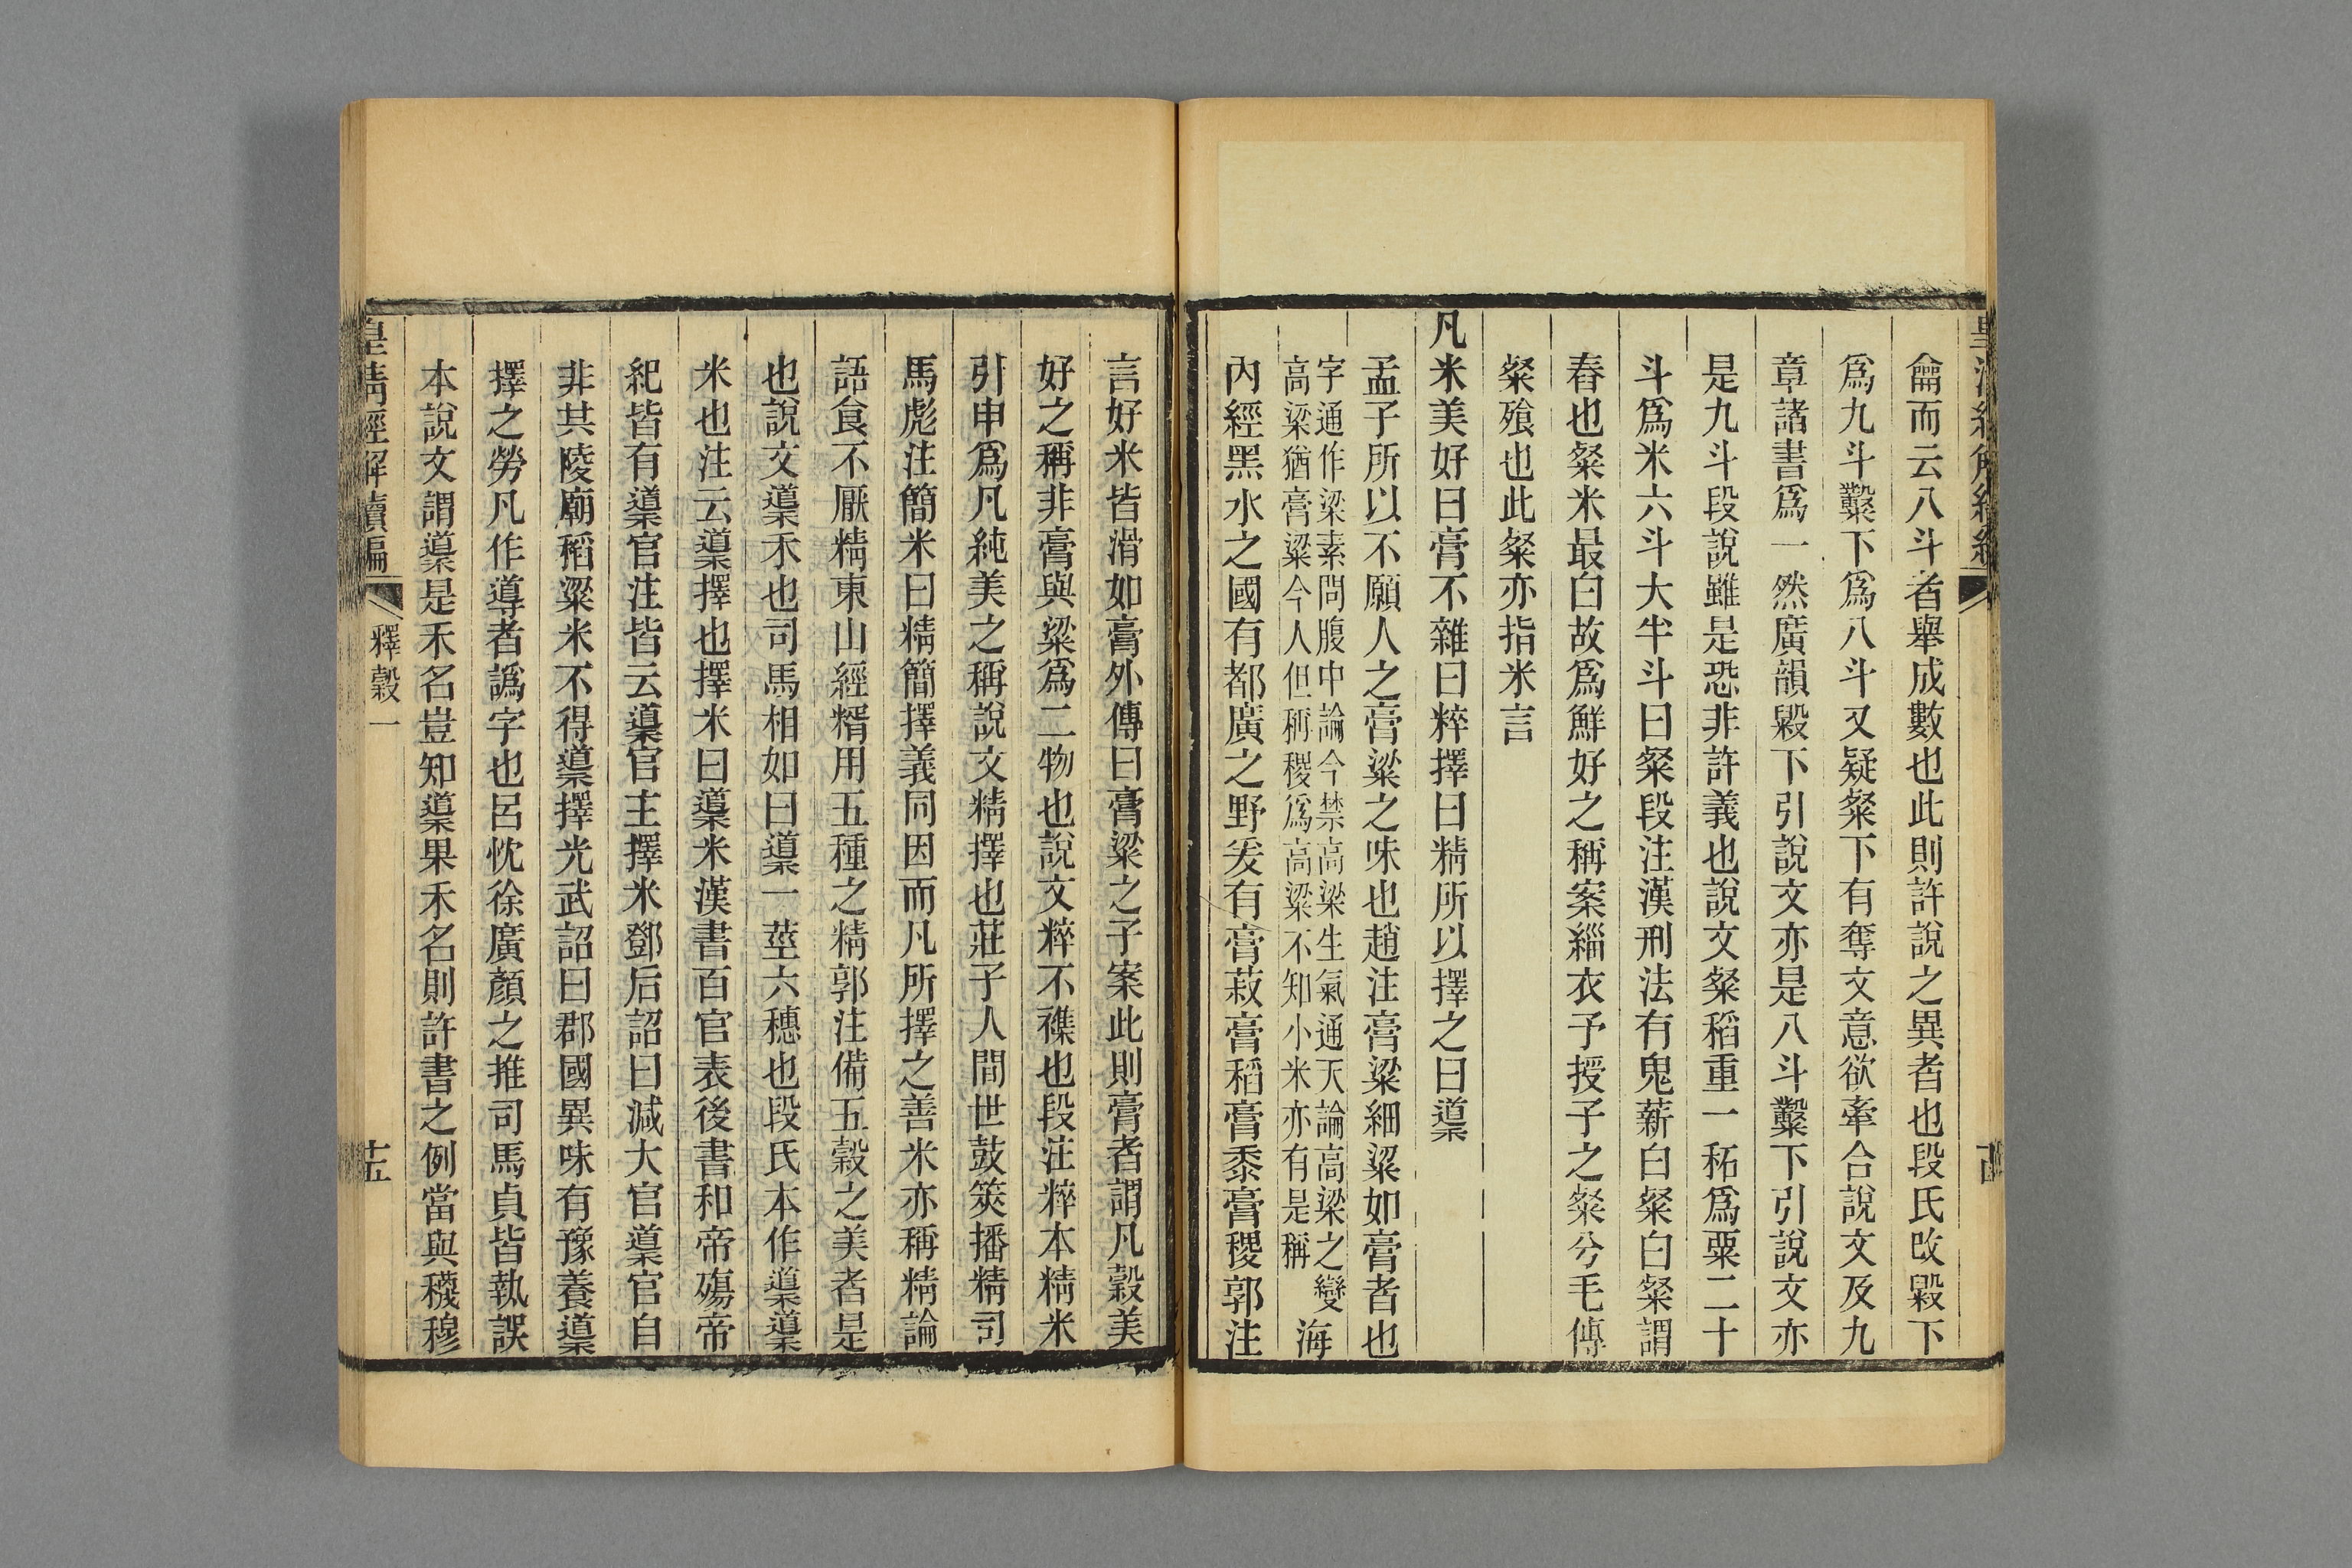 侖而云八斗者舉成數也此則許說之異者也段氏改毇下
爲九斗糳下爲八斗又疑粲下有奪文意欲牽合說文及九
章諸書爲一然廣韻毇下引說文亦是八斗糳下引說文亦
是九斗段說雖是恐非許義也說文粲稻重一䄷爲粟二十
斗爲米六斗大半斗曰粲段注漢刑法有鬼薪白粲白粲謂
舂也粲米最白故爲鮮好之稱案緇衣予授子之粲兮毛傳
粲飧也此粲亦指米言
凡米美好曰膏不雜曰粹擇曰精所以擇之曰䆃
孟子所以不願人之膏粱之味也趙注膏粱細粱如膏者也
字通作梁素問腹中論今禁高梁生氣通天論高梁之變
高梁猶膏粱今人但稱稷爲高粱不知小米亦有是稱
海
內經黑水之國有都廣之野爰有膏菽膏稻膏黍膏稷郭注
言好米皆滑如膏外傳曰膏粱之子案此則膏者謂凡穀美
好之稱非膏與粱爲二物也說文粹不襍也段注粹本精米
引申爲凡純美之稱說文精擇也莊子人間世鼓筴播精司
馬彪注簡米曰精簡擇義同因而凡所擇之善米亦稱精論
語食不厭精東山經糈用五種之精郭注備五穀之美者是
也說文䆃禾也司馬相如曰䆃一莖六穗也段氏本作䆃䆃
米也注云䆃擇也擇米曰䆃米漢書百官表後書和帝殤帝
紀皆有䆃官注皆云䆃官主擇米鄧后詔曰減大官䆃官自
非其陵廟稻粱米不得䆃擇光武詔曰郡國異味有豫養䆃
擇之勞凡作導者譌字也呂忱徐廣顏之推司馬貞皆執誤
本說文謂䆃是禾名豈知䆃果禾名則許書之例當與穖穆
皇清經解續編
釋穀一
十五